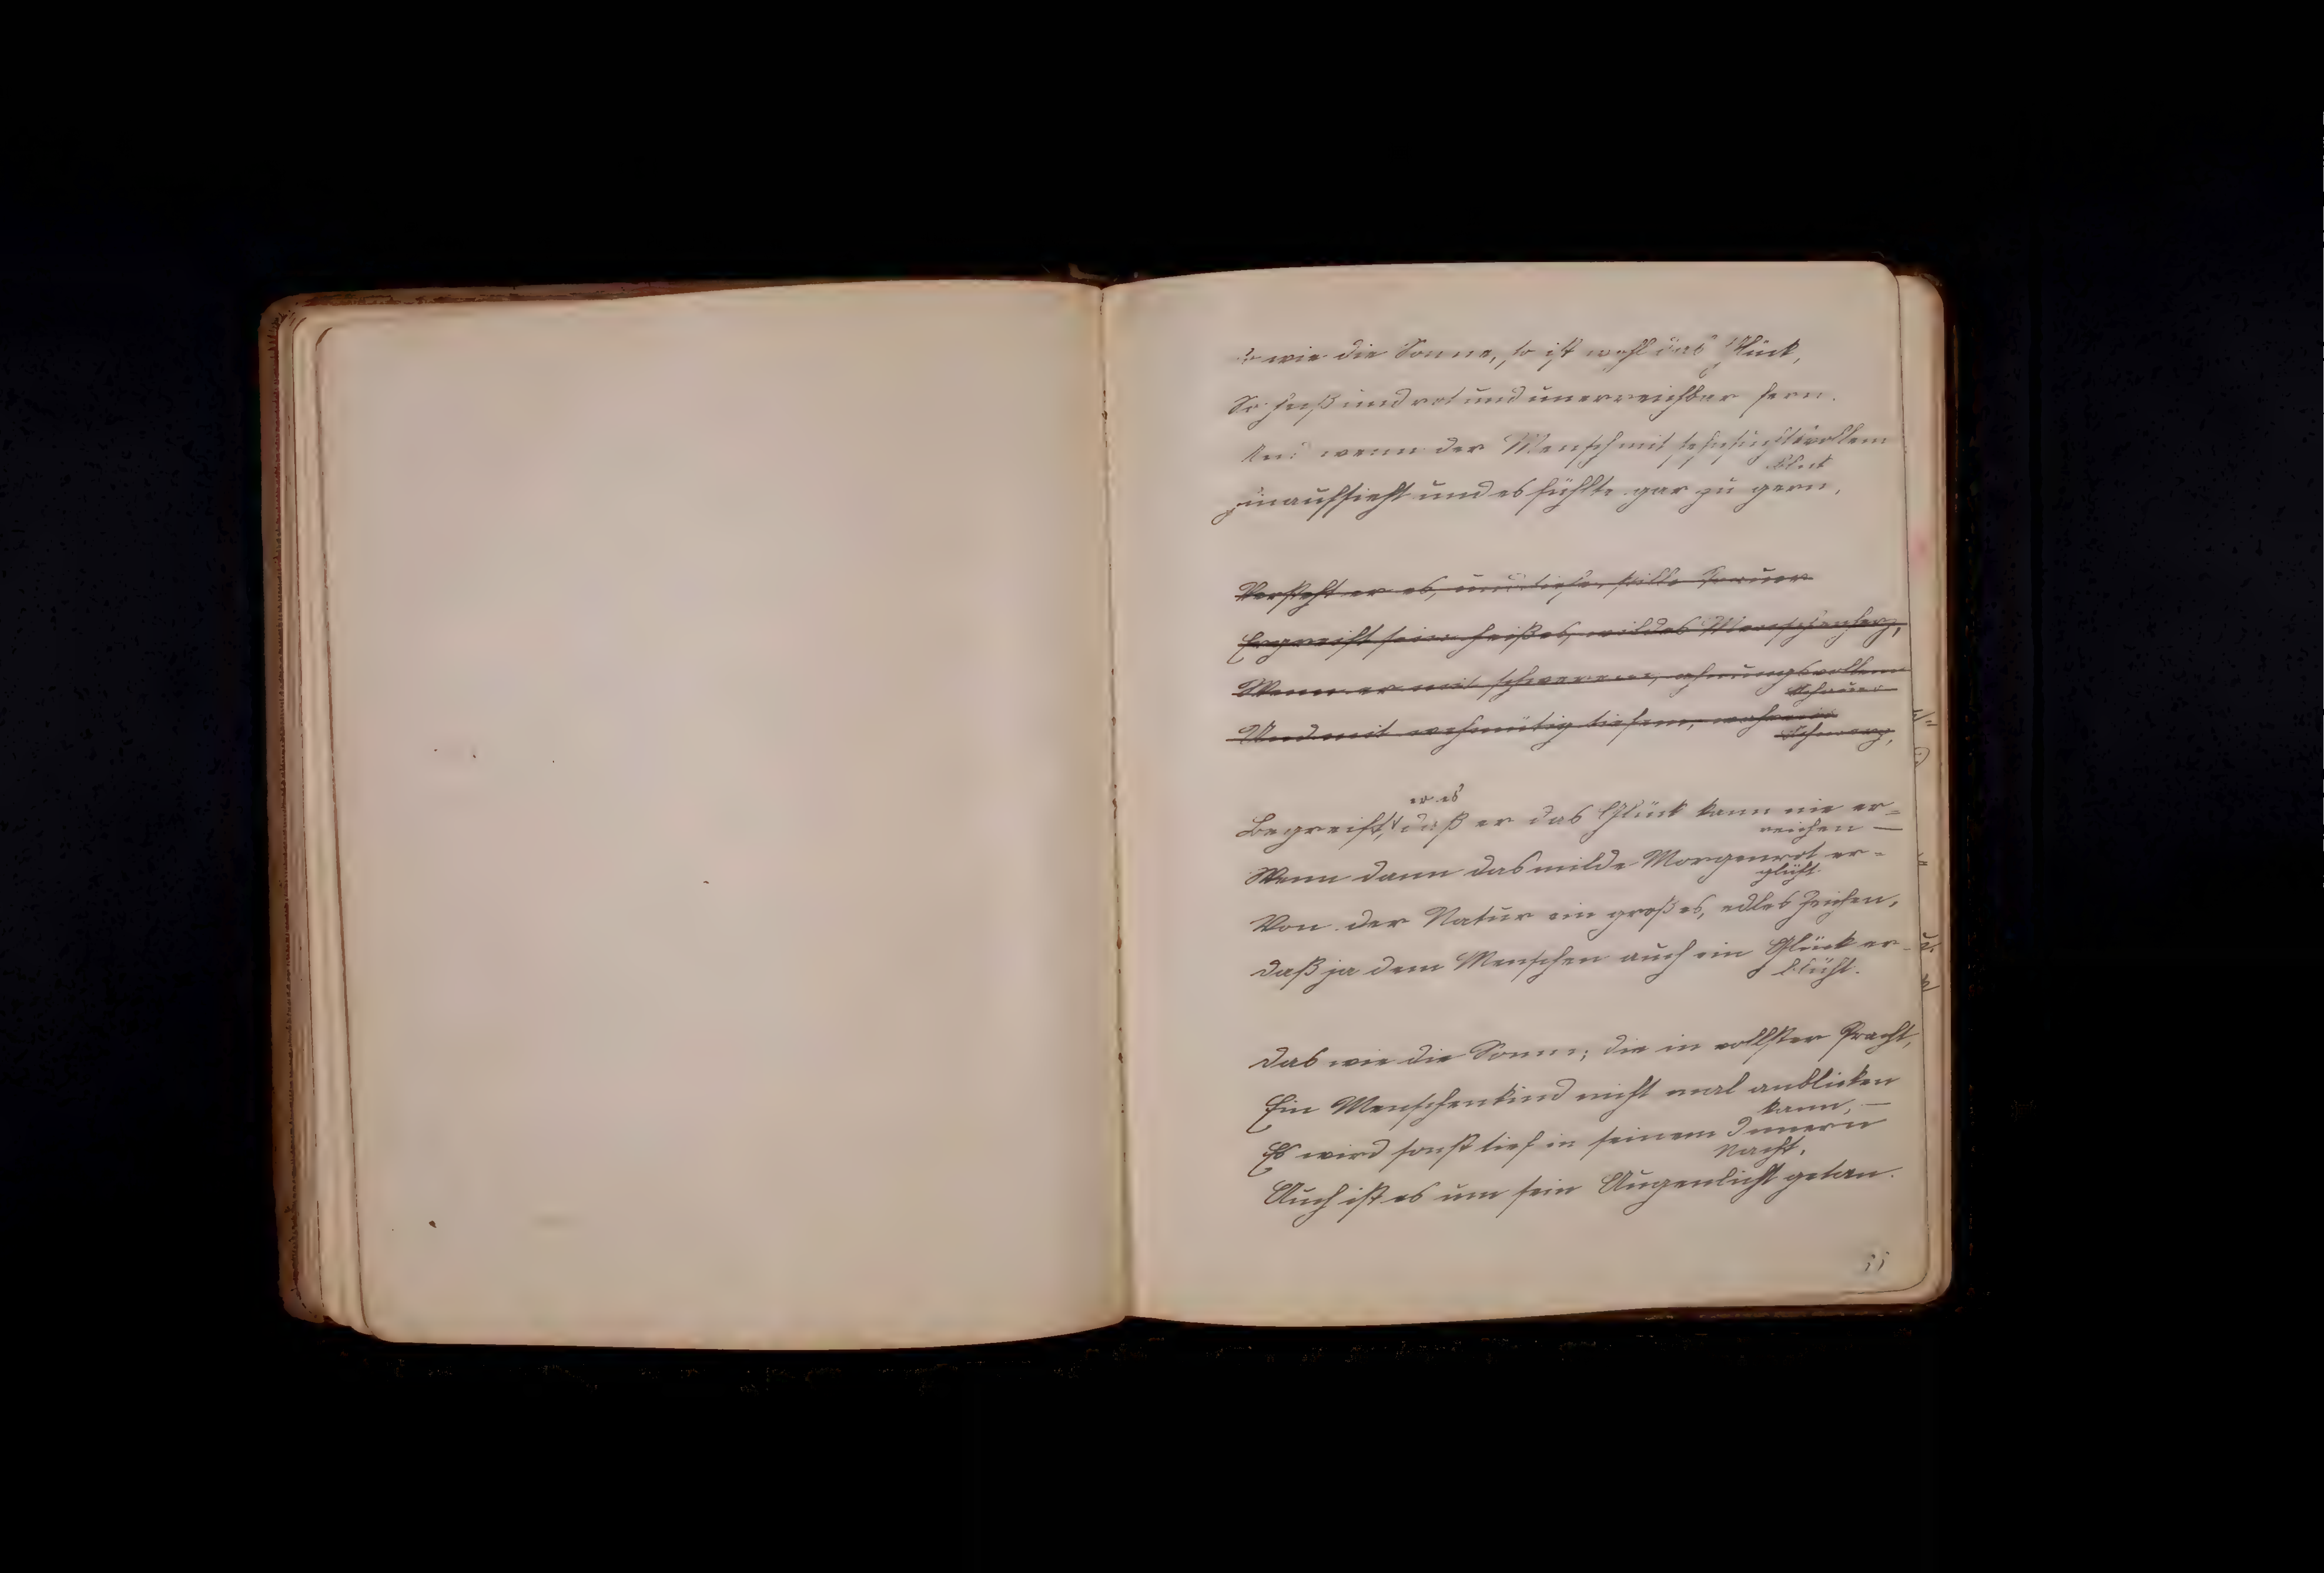 So wie die Sonne, so ist wohl das Glück,
So heiß und rot und unerreichbar fern.
Und wenn der Mensch mit sehnsuchtsvollem
Blick
Hinaufsieht und es fühlte gar zu gern,
Versteht er es, und tiefe, stille Trauer
Ergreift sein heißes, wildes Menschenherz,
Wenn er mit schwerem, ahnungsvollem
Schauer
Und mit wehmütig tiefem, wahrem
Schmerz,
er es
Begreift, daß er das Glück kann nie er-
reichen —
Wenn dann das milde Morgenrot er-
glüht.
Von der Natur ein großes, edles Zeichen,
Daß ja dem Menschen auch ein Glück er-
blüht.
Das wie die Sonne; die in vollster Pracht,
Ein Menschenkind nicht mal anblicken
kann, —
Es wird sonst tief in seinem Innern
Nacht,
Auch ist es um sein Augenlicht getan.